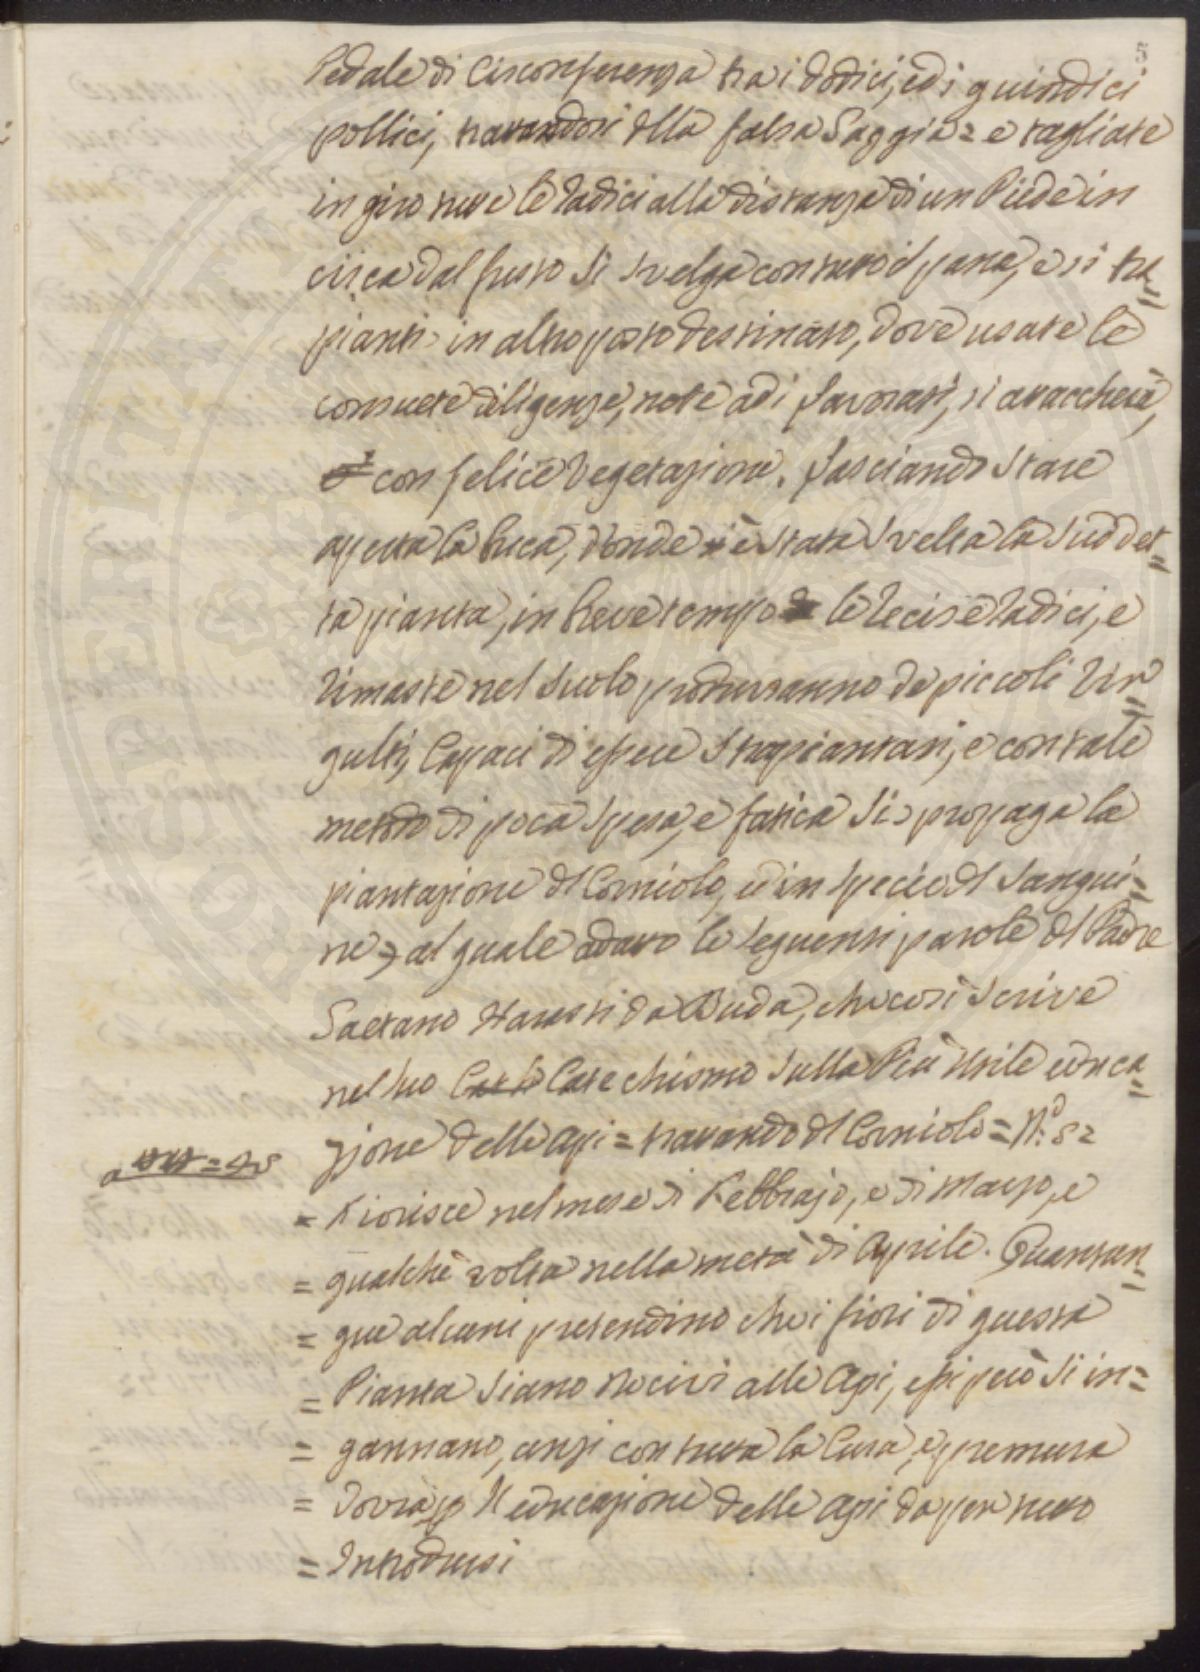 5
Pedale di Circonferenza tra i dodici, ed i quindici
pollici, trovandosi della falsa Saggia = e tagliate
in giro tutte le Radici alla distanza di un Piede in
circa dal fusto Si Svelga con tutto il pane, e si tra=
pianti in altro posto destinato, dove usate le
consuete diligenze, note ad i
si attaccherà,
con felice vegetazione. Lasciando Stare
aperta la buca, donde è Stata Svelta la Suddet=
ta pianta, in breve tempo le Recise Radici, e
Rimaste nel Suolo produrranno de piccoli Vir=
gulti, Capaci di essere Strapiantati, e con tale
metodo di poca Spesa, e fatica Si propaga la
piantazione del Corniolo, ed in Specie del Sangui=
ne, al quale adatto le Seguenti parole del Padre
Gaetano Harasti da Buda, che così Scrive
nel suo Catechismo Sulla Più Utile educa=
zione delle Api = trattando del Corniolo = N.º 8 =
= Fiorisce nel mese di Febbrajo, e di Marzo, e
= qualche volta nella metà di Aprile. Quantun=
= que alcuni pretendino che i fiori di questa
= Pianta Siano Nocivi alle Api, essi però Si in=
= gannano, anzi con tutta la Cura, e premura
= Dovrà p l'educazione delle Api da per tutto
= Introdursi